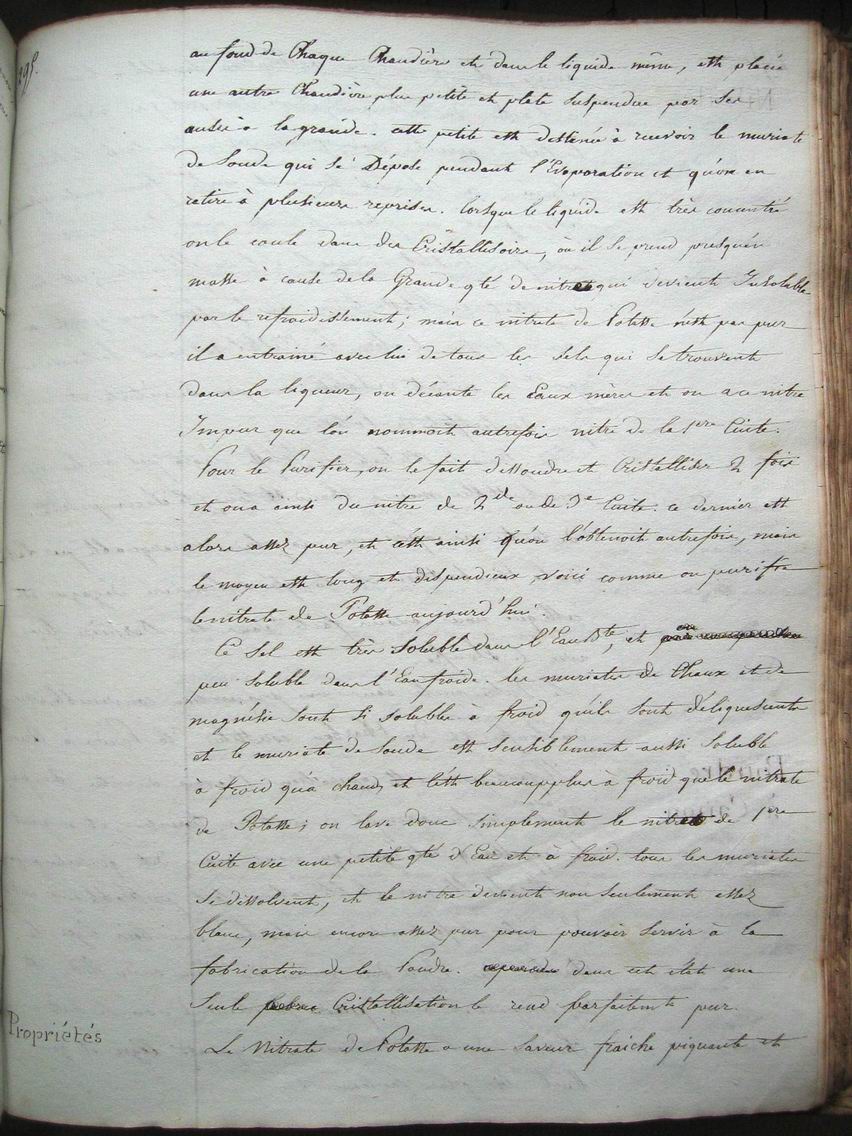 295.
au fond de Chaque Chaudière et dans le liquide même, est placée
une autre Chaudière plus petite et plate suspendue par ses
anses à la grande. cette petite est destinée à recevoir le muriate
de Soude qui se Dépose pendant l'Evaporation et qu'on en
retire à plusieurs reprises. lorsque le liquide est très concentré
on le coule dans des Cristallisoirs, où il se prend presqu'en
masse à cause de la Grande qté de nitre qui devient Insoluble
par le refroidissement; mais ce nitrate de Potasse n'est pas pur
il a entrainé avec lui de tous les sels qui se trouvent
dans la liqueur, on décante les Eaux mères et on a ce nitre
Impur que l'on nommoit autrefois nitre de la 1ere Cuite.
Pour le Purifier, on le fait dissoudre et Cristalliser 2 fois
et on a ainsi du nitre de 2de ou de 3e Cuite. ce dernier est
alors assez pur, et c'est ainsi qu'on l'obtenoit autrefois, mais
le moyen est long et dispendieux, voici comme on purifie
le nitrate de Potasse aujourd'hui.
Ce Sel est très soluble dans l'Eau Bte, et
peu soluble dans l'Eau froide. les muriates de Chaux et de
magnésie sont si solubles à froid qu'ils sont déliquescents
et le muriate de Soude est sensiblement aussi soluble
à froid qu'à chaud, et l'est beaucoup plus à froid que le nitrate
de Potasse; on lave donc simplement le nitre de 1ere
Cuite avec une petite qté d'Eau et à froid. tous les muriates
se dissolvent, et le nitre devient non seulement assez
blanc, mais encore assez pur pour pouvoir servir à la
fabrication de la Poudre. dans cet état une
seule Cristallisation le rend parfaitemt pur.
Propriétés
Le Nitrate de Potasse a une Saveur fraiche piquante et